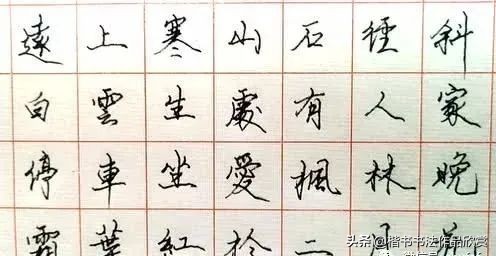 遠上寒山石徑斜
白雲生處有人家
停車坐愛楓林晚
霜葉紅於二月
头条@楷书书法作品欣赏